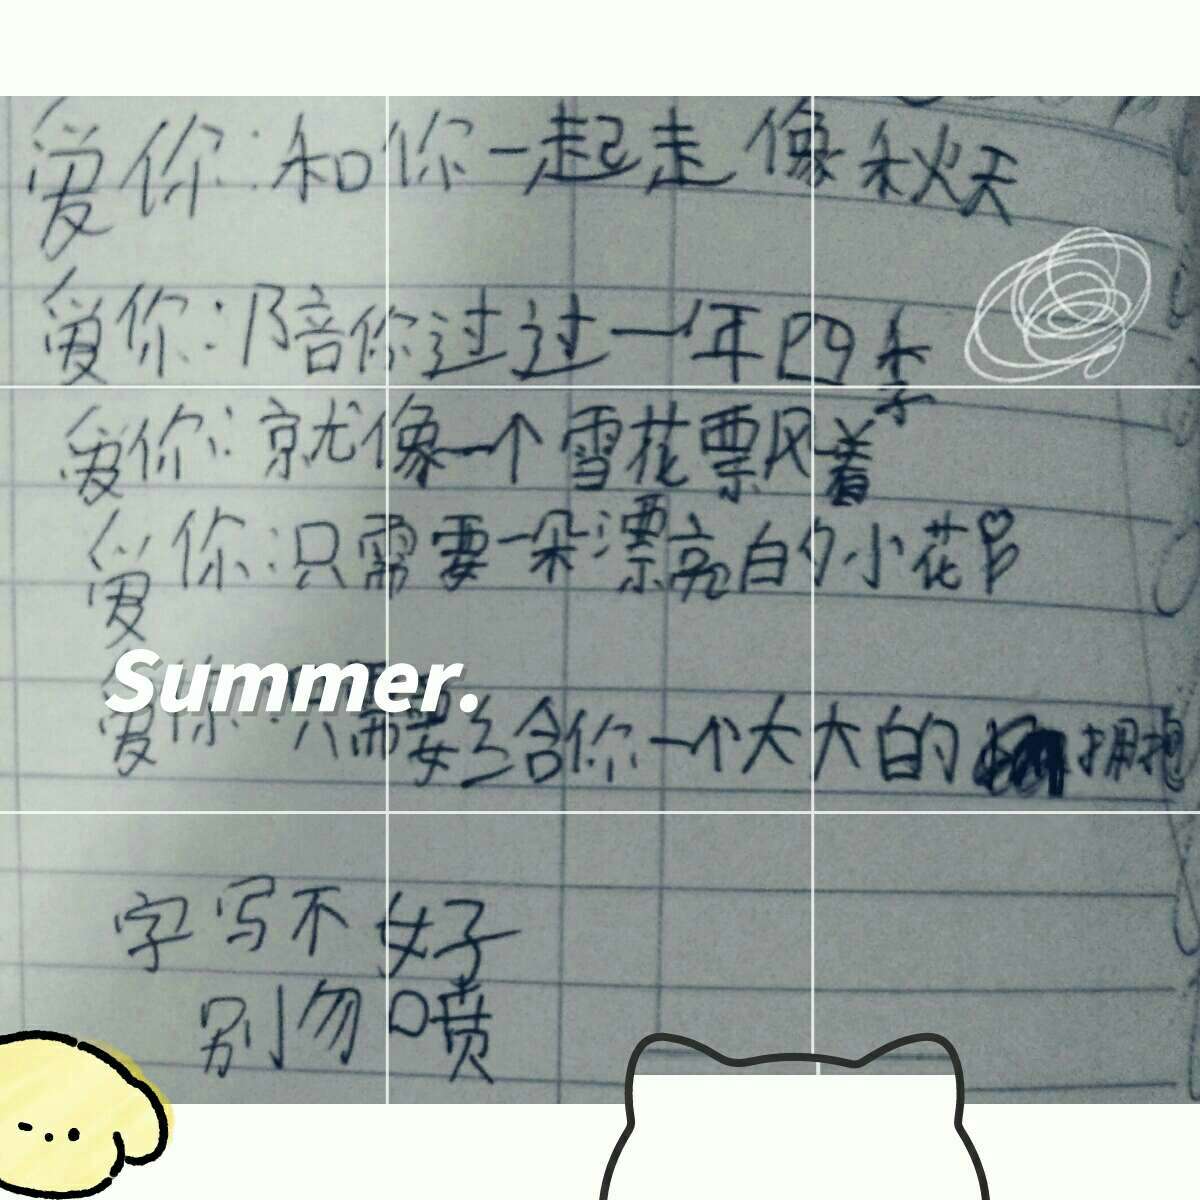 爱你:和你一起走像秋天
爱你:陪你过过一年四季
爱你:就像一个雪花票风着
爱你:只需要一朵漂亮白勺小花
Summer.
爱你:只需要给你一个大大的拥抱
字写不好
别勿喷